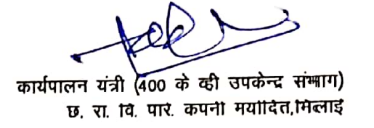 कार्यपालन यंत्री (400 के व्ही उपकेन्द्र संभाग)
छ. रा. वि. पारे. कंपनी मर्यादित,भिलाई